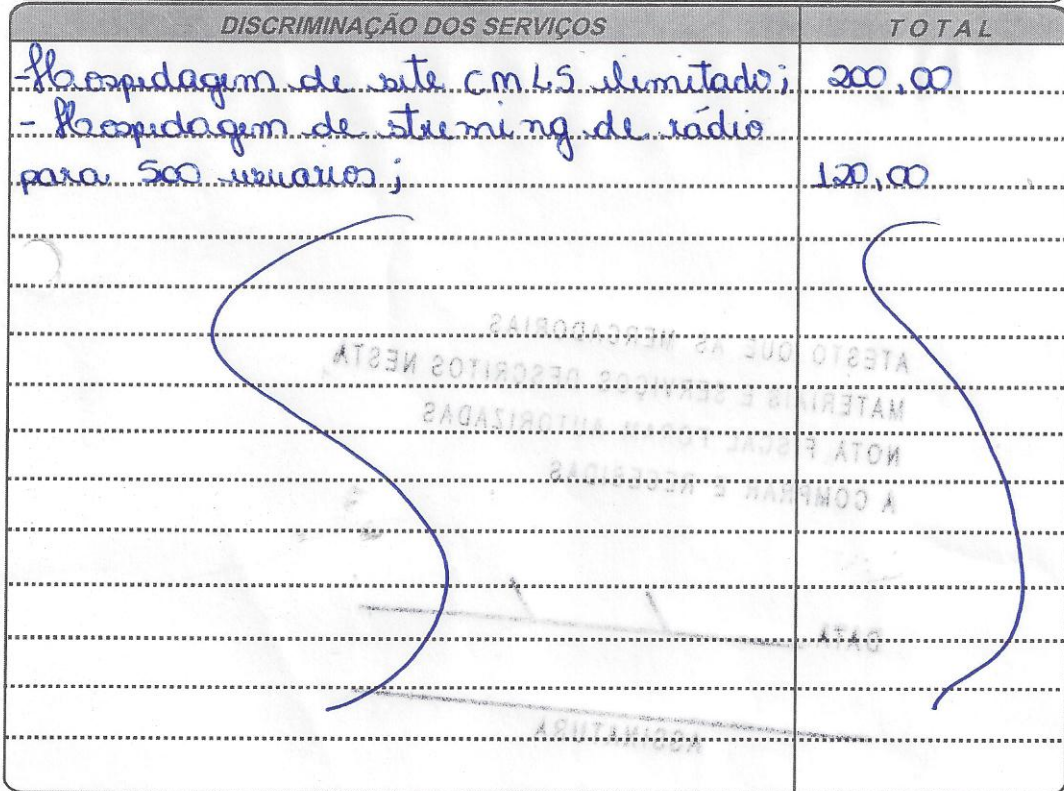 DISCRIMINAÇÃO DOS SERVIÇOS TOTAL
- Hospedagem de site CMLS ilimitado; 200,00
- Hospedagem de streming de rádio
para 500 usuarios; 120,00
ATESTO QUE AS MERCADORIAS
MATERIAIS E SERVIÇOS DESCRITOS NESTA
NOTA FISCAL FORAM AUTORIZADAS
A COMPRAR E RECEBIDAS
DATA / /
ASSINATURA